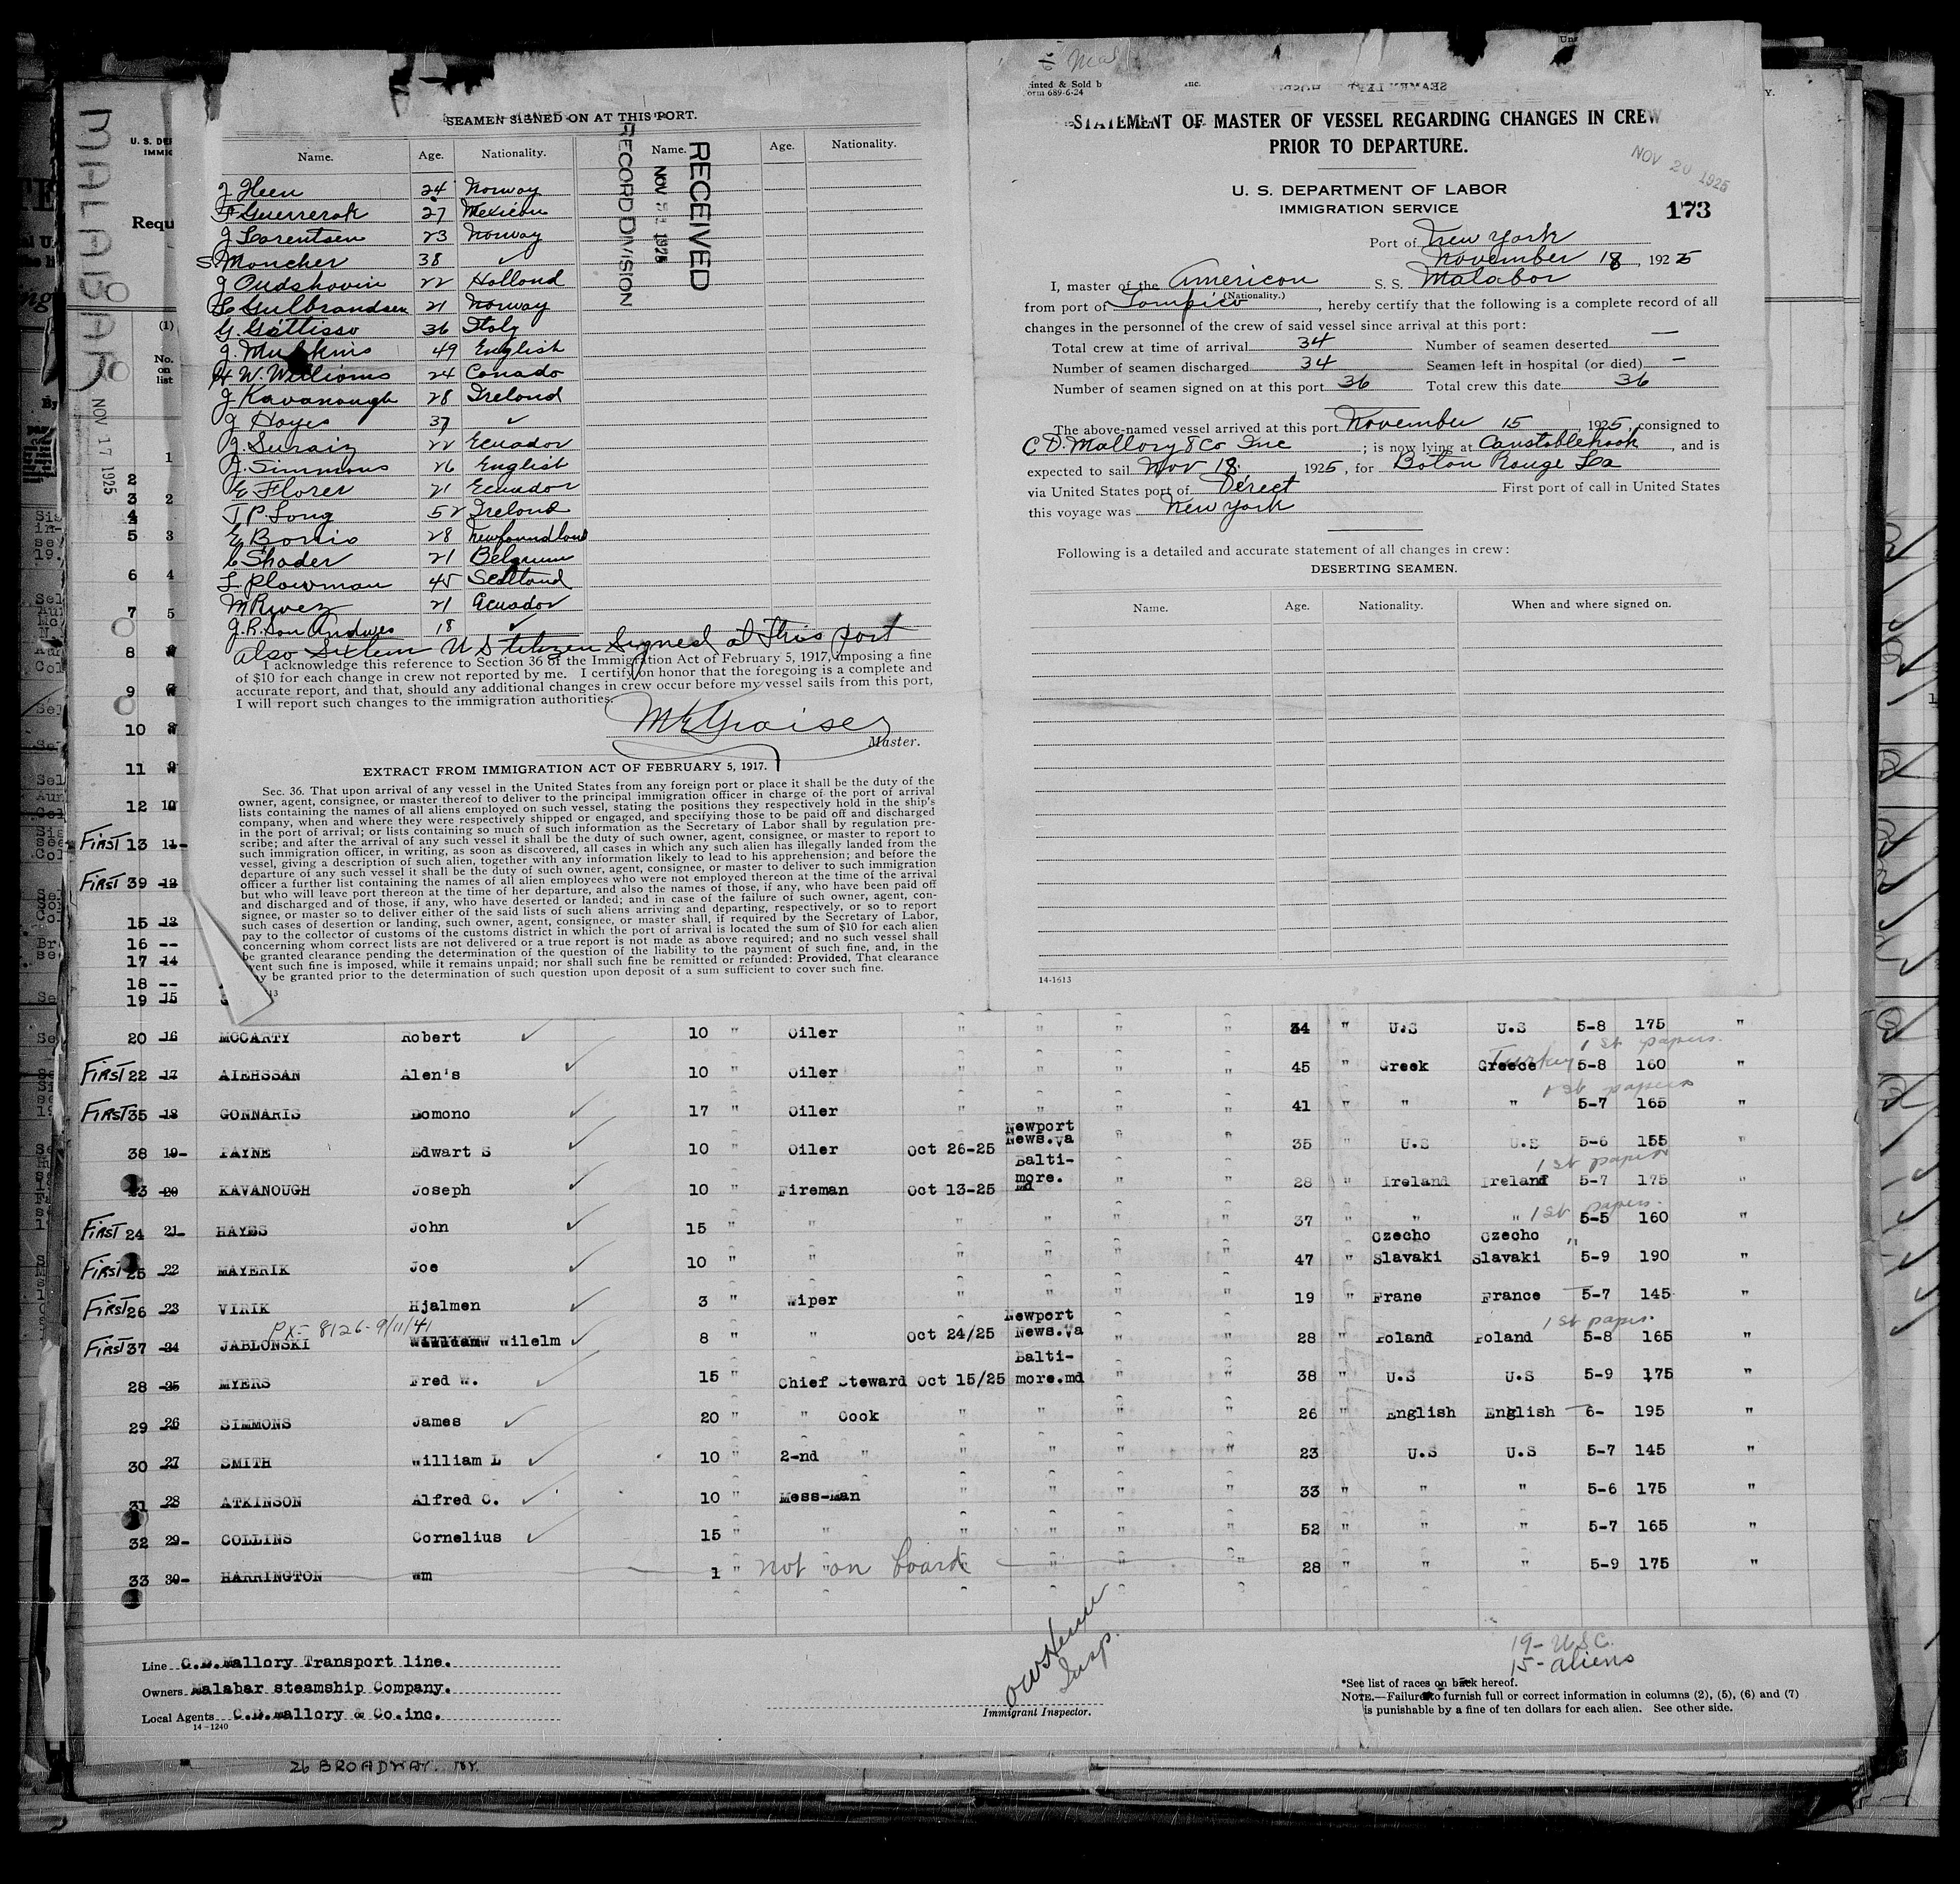 SEAMEN SIGNED ON AT THIS PORT.
Name. Age. Nationality. Name. Age. Nationality.
J Heen 24 Norway
F Guerrerok 27 Mexican
J Lorentsen 23 Norway
S. Moncher 38 ✓
J Oudshovin 22 Holland
L Gulbrandsen 21 Norway
G. Gattisso 36 Italy
J. Mulkins 49 English
H W. Williams 24 Canada
J Kavanaugh 28 Ireland
J Hayes 37 ✓
J. Suraiz 22 Ecuador
J. Simmons 26 English
E Flores 21 Ecuador
T P. Long 52 Ireland
E Borris 28 Newfoundland
C Shader 21 Belgium
L Plowman 45 Scotland
M Rivez 21 Ecuador
J. R. San Andres 18 ✓
also Sixteen U S Citizen Signed at this port
I acknowledge this reference to Section 36 of the Immigration Act of February 5, 1917, imposing a fine
of $10 for each change in crew not reported by me. I certify on honor that the foregoing is a complete and
accurate report, and that, should any additional changes in crew occur before my vessel sails from this port,
I will report such changes to the immigration authorities.
Master.
EXTRACT FROM IMMIGRATION ACT OF FEBRUARY 5, 1917.
Sec. 36. That upon arrival of any vessel in the United States from any foreign port or place it shall be the duty of the
owner, agent, consignee, or master thereof to deliver to the principal immigration officer in charge of the port of arrival
lists containing the names of all aliens employed on such vessel, stating the positions they respectively hold in the ship's
company, when and where they were respectively shipped or engaged, and specifying those to be paid off and discharged
in the port of arrival; or lists containing so much of such information as the Secretary of Labor shall by regulation pre-
scribe; and after the arrival of any such vessel it shall be the duty of such owner, agent, consignee, or master to report to
such immigration officer, in writing, as soon as discovered, all cases in which any such alien has illegally landed from the
vessel, giving a description of such alien, together with any information likely to lead to his apprehension; and before the
departure of any such vessel it shall be the duty of such owner, agent, consignee, or master to deliver to such immigration
officer a further list containing the names of all alien employees who were not employed thereon at the time of the arrival
but who will leave port thereon at the time of her departure, and also the names of those, if any, who have been paid off
and discharged and of those, if any, who have deserted or landed; and in case of the failure of such owner, agent, con-
signee, or master so to deliver either of the said lists of such aliens arriving and departing, respectively, or so to report
such cases of desertion or landing, such owner, agent, consignee, or master shall, if required by the Secretary of Labor,
pay to the collector of customs of the customs district in which the port of arrival is located the sum of $10 for each alien
concerning whom correct lists are not delivered or a true report is not made as above required; and no such vessel shall
be granted clearance pending the determination of the question of the liability to the payment of such fine, and, in the
vent such fine is imposed, while it remains unpaid; nor shall such fine be remitted or refunded: Provided, That clearance
y be granted prior to the determination of such question upon deposit of a sum sufficient to cover such fine.
RECEIVED
NOV 1925
RECORD DIVISION
MALABAR
NOV 17 1925
STATEMENT OF MASTER OF VESSEL REGARDING CHANGES IN CREW
PRIOR TO DEPARTURE.
NOV 20 1925
U. S. DEPARTMENT OF LABOR
IMMIGRATION SERVICE
173
Port of New York
November 18, 1925
I, master of the American S. S. Malabar
(Nationality.)
from port of Tampico, hereby certify that the following is a complete record of all
changes in the personnel of the crew of said vessel since arrival at this port:
Total crew at time of arrival 34 Number of seamen deserted —
Number of seamen discharged 34 Seamen left in hospital (or died) —
Number of seamen signed on at this port 36 Total crew this date 36
The above-named vessel arrived at this port November 15 1925, consigned to
C D. Mallory & Co Inc; is now lying at Constablehook, and is
expected to sail Nov 18, 1925, for Baton Rouge La
via United States port of Direct First port of call in United States
this voyage was New York
Following is a detailed and accurate statement of all changes in crew:
DESERTING SEAMEN.
Name. Age. Nationality. When and where signed on.
14-1613
20 16 MCCARTY Robert ✓ 10 " Oiler " " " " 34 " U.S U.S 5-8 175 "
1st papers.
First 22 17 AIEHSSAN Alen's ✓ 10 " Oiler " " " " 45 " Greek Greece Turkey 5-8 160 "
1st papers
First 35 18 GONNARIS Domono ✓ 17 " Oiler " " " " 41 " " " 5-7 165 "
38 19- PAYNE Edwart S ✓ 10 " Oiler Oct 26-25 Newport News.Va " " 35 " U.S U.S 5-6 155 "
1st papers
23 20 KAVANOUGH Joseph ✓ 10 " Fireman Oct 13-25 Balti-more. Md " " 28 " Ireland Ireland 5-7 175 "
1st papers.
First 24 21- HAYES John ✓ 15 " " " " " " 37 " " " 5-5 160 "
First 25 22 MAYERIK Joe ✓ 10 " " " " " " 47 " Czecho Slavaki Czecho Slavaki " 5-9 190 "
First 26 23 VIRIK Hjalmen ✓ 3 " Wiper " " " " 19 " Frane France 5-7 145 "
PX- 8126-9/11/41
1st paper.
First 37 24 JABLONSKI Wilelm ✓ 8 " " Oct 24/25 Newport News.Va " " 28 " Poland Poland 5-8 165 "
28 25 MYERS Fred W. ✓ 15 " Chief Steward Oct 15/25 Balti-more.md " " 38 " U.S U.S 5-9 175 "
29 26 SIMMONS James ✓ 20 " " Cook " " " " 26 " English English 6- 195 "
30 27 SMITH William L ✓ 10 " 2-nd " " " " " 23 U.S U.S 5-7 145 "
31 28 ATKINSON Alfred C. ✓ 10 " Mess-Man " " " " 33 " " " 5-6 175 "
32 29- COLLINS Cornelius ✓ 15 " " " " " " 52 " " " 5-7 165 "
33 30- HARRINGTON Wm 1 " not on board " " " 28 " " " 5-9 175 "
19- U.S.C.
15- aliens
Line C.D.Mallory Transport line.
Owners Malabar steamship Company.
Local Agents C.D.Mallory & Co.inc.
14-1240
Insp.
Immigrant Inspector.
*See list of races on back hereof.
NOTE.—Failure to furnish full or correct information in columns (2), (5), (6) and (7)
is punishable by a fine of ten dollars for each alien. See other side.
26 BROADWAY. NY.